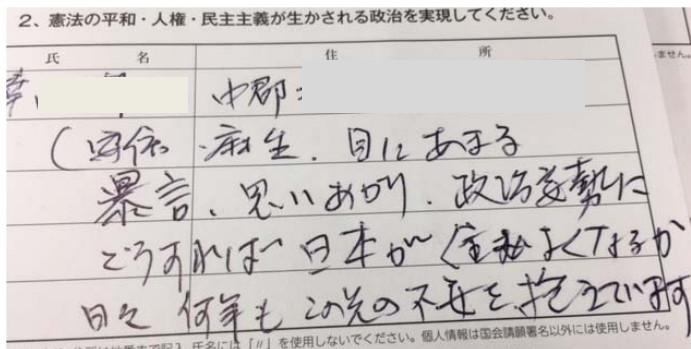 2、憲法の平和・人権・民主主義が生かされる政治を実現してください。
氏 名 住 所
ません。
中郡
麻生、目にあまる
暴言、思いあがり、政治姿勢に
どうすれば日本がよくなるか
日々 何年もこの先の不安を抱えています
氏名には「〃」を使用しないでください。個人情報は国会請願署名以外には使用しません。